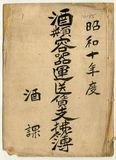 昭和十年度
酒類容器運送賃支拂簿
酒課